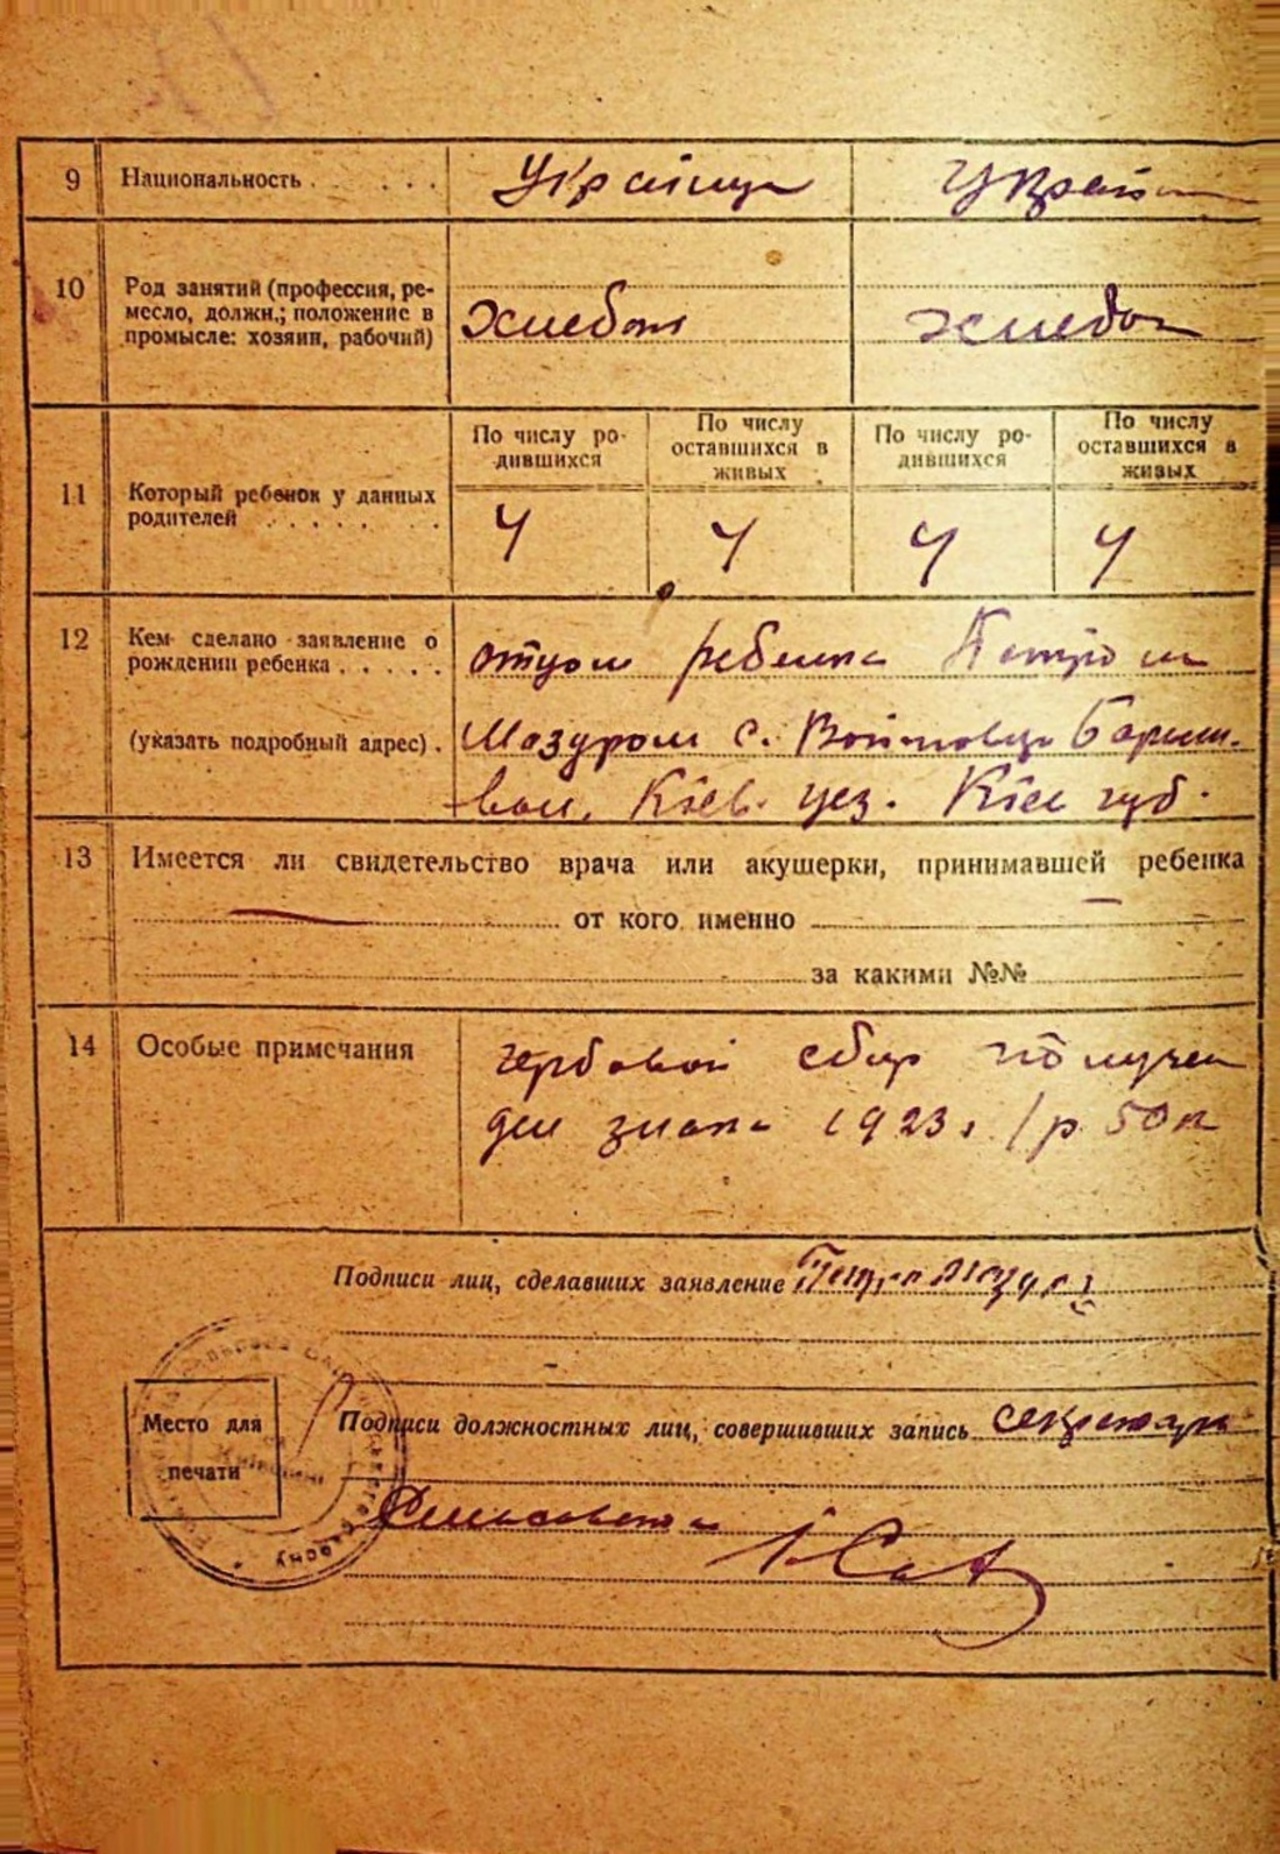 9 Национальность . . . . . Українец Україн
10 Род занятий (профессия, ре-
месло, должн.; положение в
промысле: хозяин, рабочий)
хлебоп хлебоп
По числу ро-
дившихся
По числу
оставшихся в
живых
По числу ро-
дившихся
По числу
оставшихся в
живых
11 Который ребенок у данных
родителей . . . . . . .
4 4 4 4
12 Кем сделано заявление о
рождении ребенка . . . . .
отцом ребенка Петром
(указать подробный адрес) . Мазуром с. Войтовци Бориш.
вол. Кіев. уез. Кіев губ.
13 Имеется ли свидетельство врача или акушерки, принимавшей ребенка
— от кого именно —
за какими №№
14 Особые примечания
гербовой сбор получен
ден знака 1923 г. 1 р 50 к
Подписи лиц, сделавших заявление Петро Мазур
Место для
печати
Подписи должностных лиц, совершивших запись секретарь